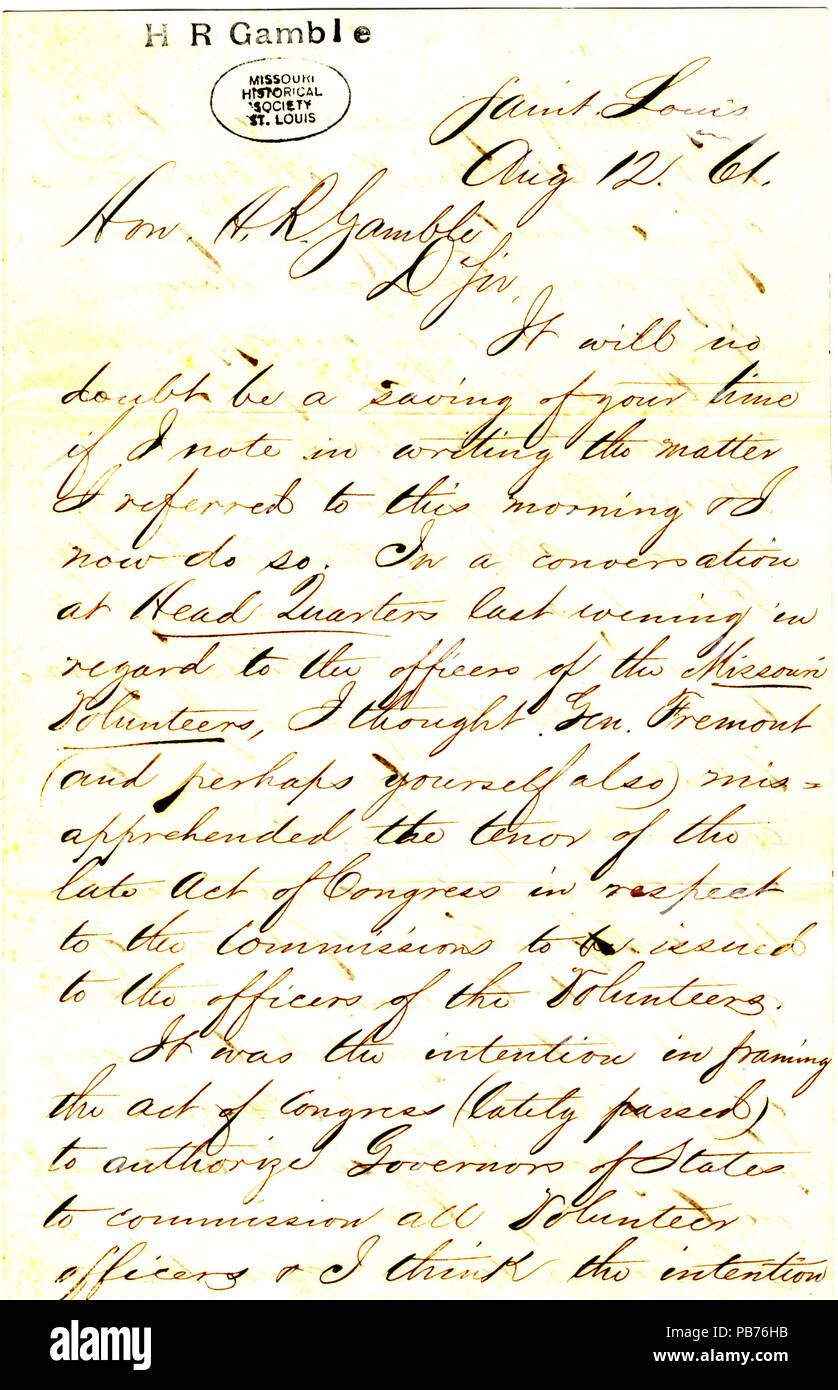 H R Gamble
MISSOURI
HISTORICAL
SOCIETY
ST. LOUIS
Saint. Louis
Aug 12. 61.
Hon. H. R. Gamble
D Sir,
It will no
doubt be a saving of your time
if I note in writing the matter
I referred to this morning & I
now do so. In a conversation
at Head Quarters last evening in
regard to the officers of the Missouri
Volunteers, I thought Gen. Fremont
(and perhaps yourself also) mis=
apprehended the tenor of the
late Act of Congress in respect
to the commissions to be issued
to the officers of the Volunteers.
It was the intention in framing
the act of Congress (lately passed)
to authorize Governors of States
to commission all Volunteer
officers & I think the intention
alamy
Image ID: PB76HB
www.alamy.com